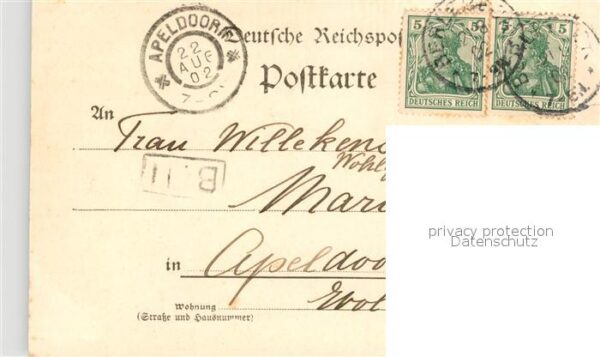 APELDOORN
22
AUG
02
Deutsche Reichspos
Postkarte
5
5
DEUTSCHES REICH
DEUTSCHES REICH
BERL
An
Frau Willeken
Wohl
B.11
Mari
privacy protection
Datenschutz
in Apeldoo
Wohnung
(Straße und Hausnummer)